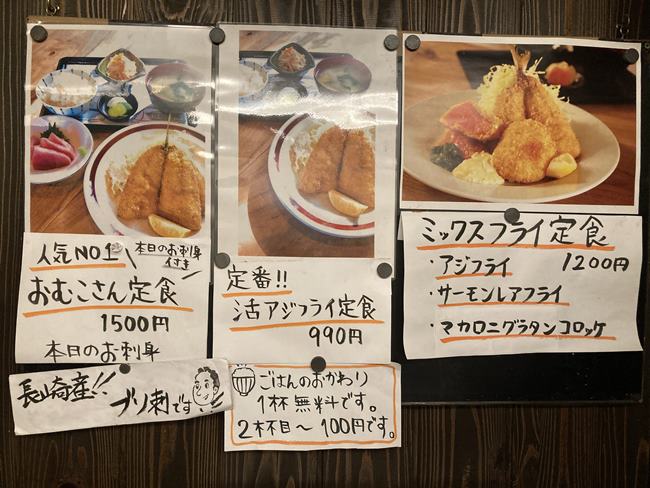 人気NO1
本日のお刺身
付き
おむこさん定食
1500円
本日のお刺身
長崎産!!
ブリ刺です
定番!!
活アジフライ定食
990円
ごはんのおかわり
1杯無料です。
2杯目～100円です。
ミックスフライ定食
・アジフライ 1200円
・サーモンレアフライ
・マカロニグラタンコロッケ